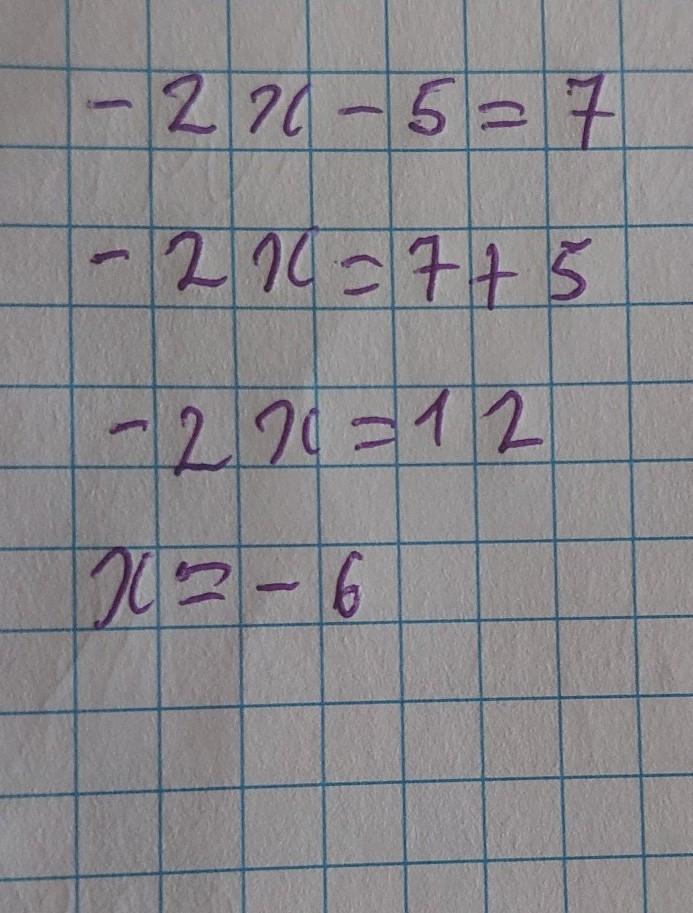 -2x-5=7
-2x=7+5
-2x=12
x=-6